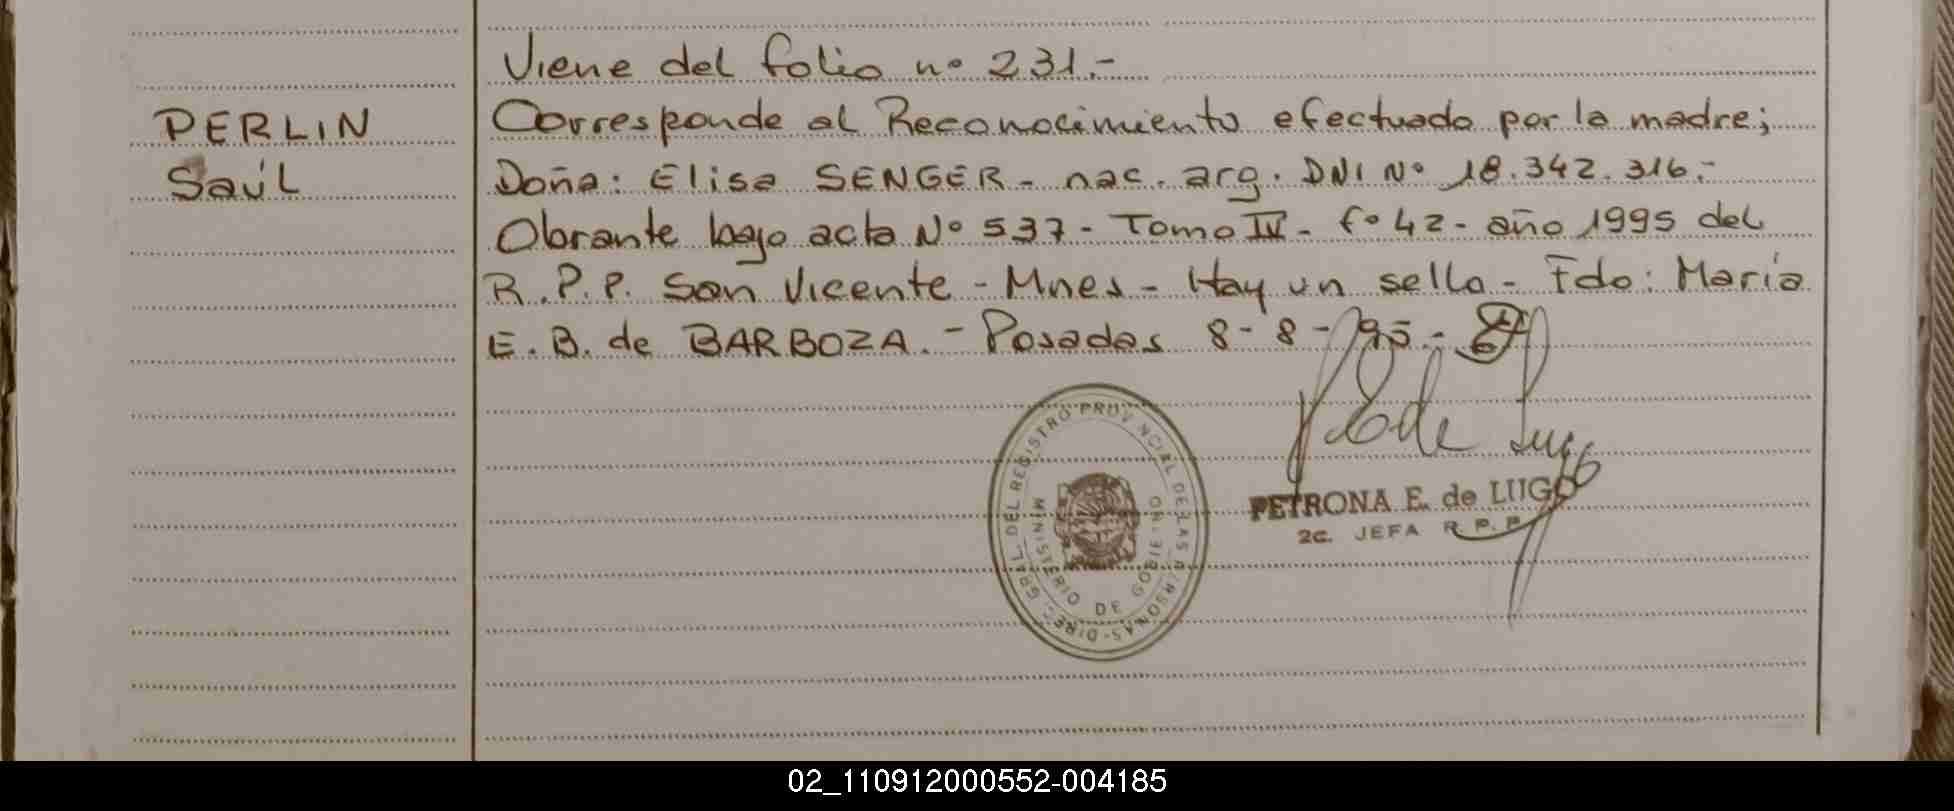 Viene del folio nº 231.-
PERLIN
Saúl
Corresponde al Reconocimiento efectuado por la madre;
Doña: Elisa SENGER - nac. arg. DNI Nº 18.342.316.-
Obrante bajo acta Nº 537 - Tomo IV - fº 42 - año 1995 del
R.P.P. San Vicente - Mnes - Hay un sello - Fdo: María
E. B. de BARBOZA. - Posadas 8-8-95.-
DIREC. GRAL. DEL REGISTRO PROVINCIAL DE LAS PERSONAS
MINISTERIO DE GOBIERNO
de Lugo
PETRONA E. de LUGO
2a. JEFA R.P.P.
02_110912000552-004185